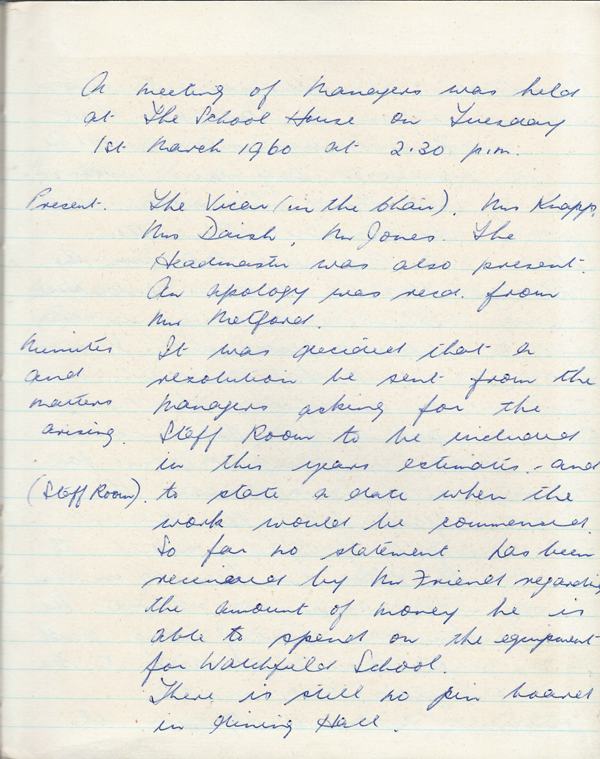 A meeting of Managers was held
at The School House on Tuesday
1st March 1960 at 2.30 p.m.
Present. The Vicar (in the Chair), Mrs Knapp,
Mrs Daish, Mr Jones. The
Headmaster was also present.
An apology was recd. from
Mr Metford.
Minutes It was decided that a
and resolution be sent from the
matters Managers asking for the
arising. Staff Room to be included
in this years estimates - and
(Staff Room). to state a date when the
work would be commenced.
So far no statement has been
received by Mr Friend regarding
the amount of money he is
able to spend on the equipment
for Watchfield School.
There is still no pin board
in dining Hall.